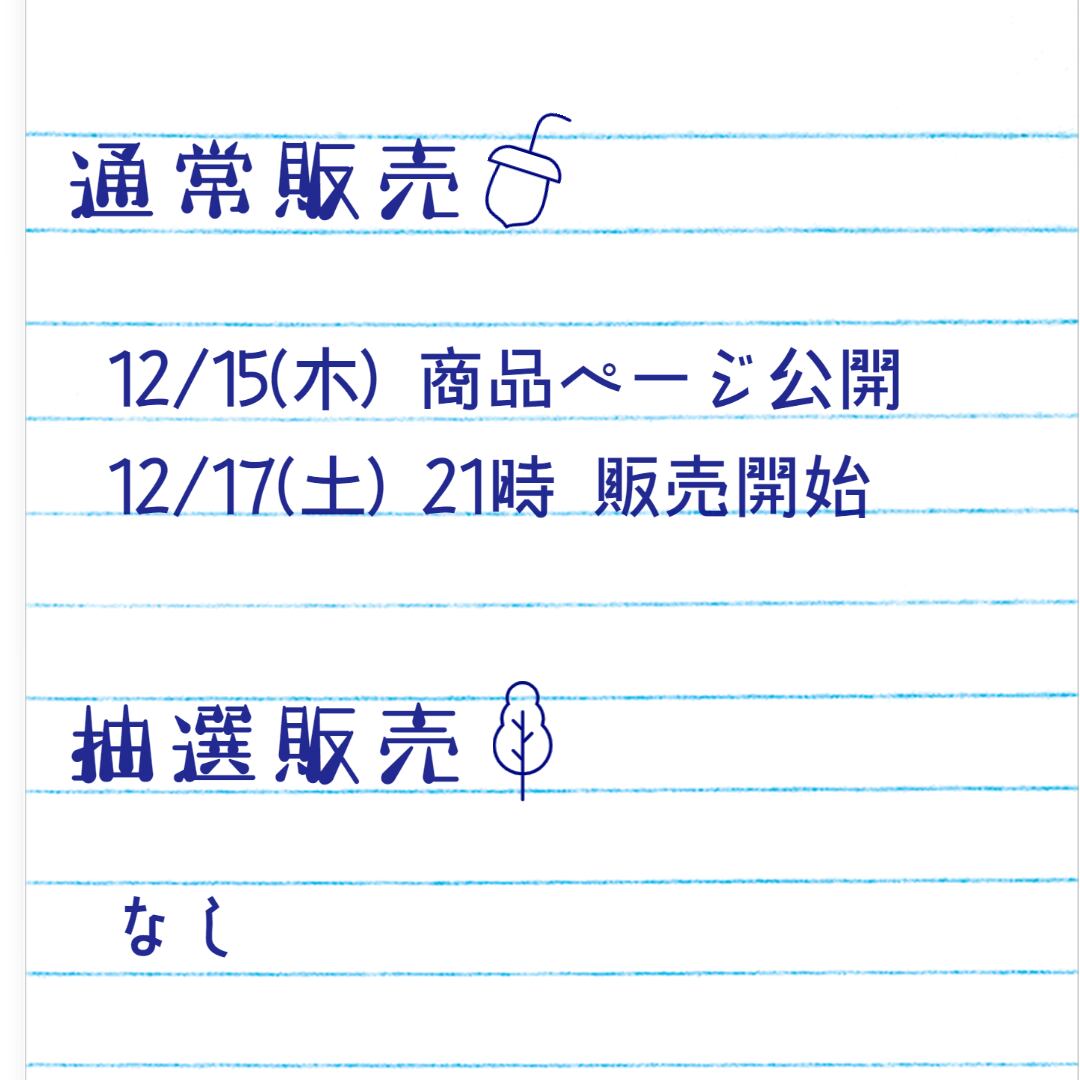 通常販売
12/15(木) 商品ページ公開
12/17(土) 21時 販売開始
抽選販売
なし